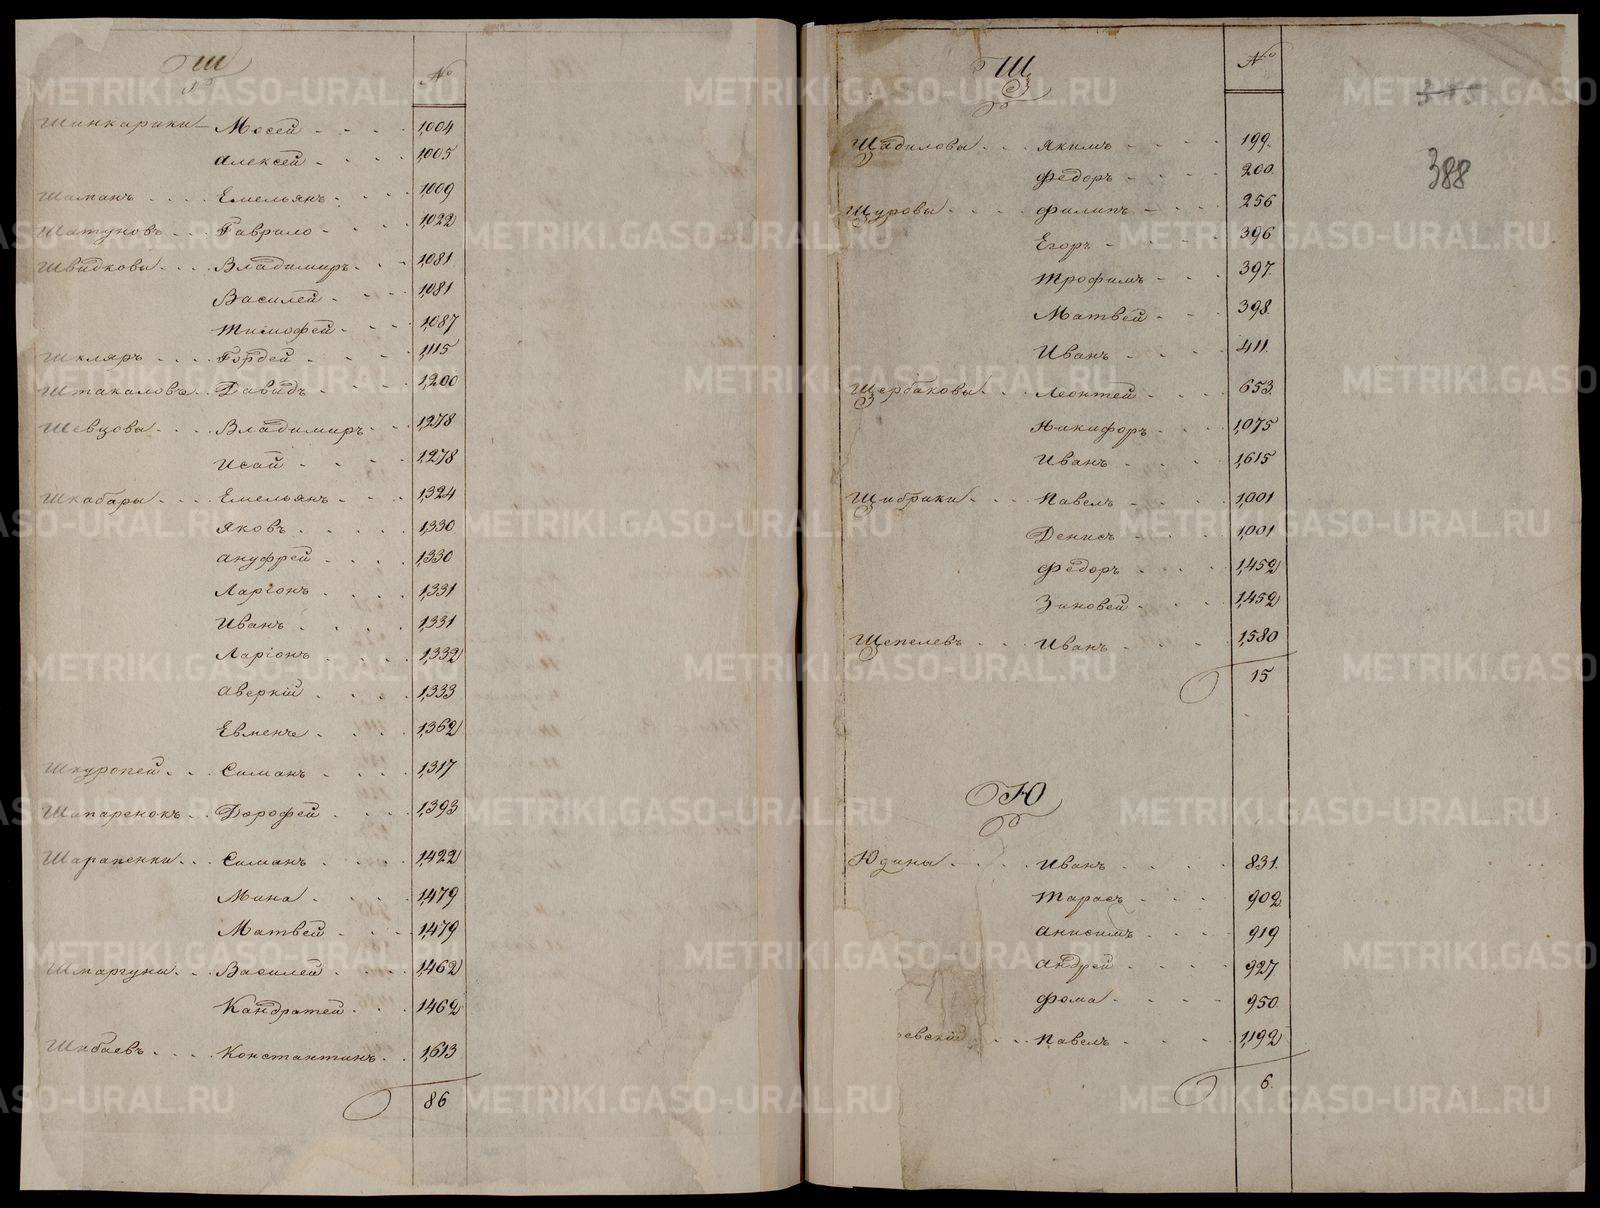 Ш
№
Шинкарики Мосей 1,004
Алексей 1,005
Шаманъ Емельянъ 1,009
Шатуновъ Гаврило 1,022
Швидковы Владимиръ 1,081
Василей 1,081
Тимофей 1,087
Шкляръ Гордей 1,115
Штакаловъ Давидъ 1,200
Шевцовы Владимиръ 1,278
Исай 1,278
Шкабары Емельянъ 1,324
Яковъ 1,330
Ануфрей 1,330
Ларіонъ 1,331
Иванъ 1,331
Ларіонъ 1,332
Аверкій 1,333
Евмене 1,362
Шкуропей Симанъ 1,317
Шапаренокъ Дорофей 1,393
Шарапенки Симанъ 1,422
Мина 1,479
Матвей 1,479
Шмаргуны Василей 1,462
Кандратей 1,462
Шибаевъ Константинъ 1,613
86
Щ
№
345
388
Щадиловы Якимъ 199.
Федоръ 200.
Щуровы Филипъ 256
Егоръ 396
Трофимъ 397.
Матвей 398.
Иванъ 411.
Щербаковы Леонтей 653.
Никифоръ 1,075
Иванъ 1,615
Щибрики Павелъ 1,001
Денисъ 1,001
Федоръ 1,452
Зиновей 1,452
Щепелевъ Иванъ 1,580
15
Ю
Юдины Иванъ 831.
Тарасъ 902.
Анисимъ 919
Андрей 927.
Фома 950.
евский Павелъ 1,192
6.
METRIKI.GASO-URAL.RU